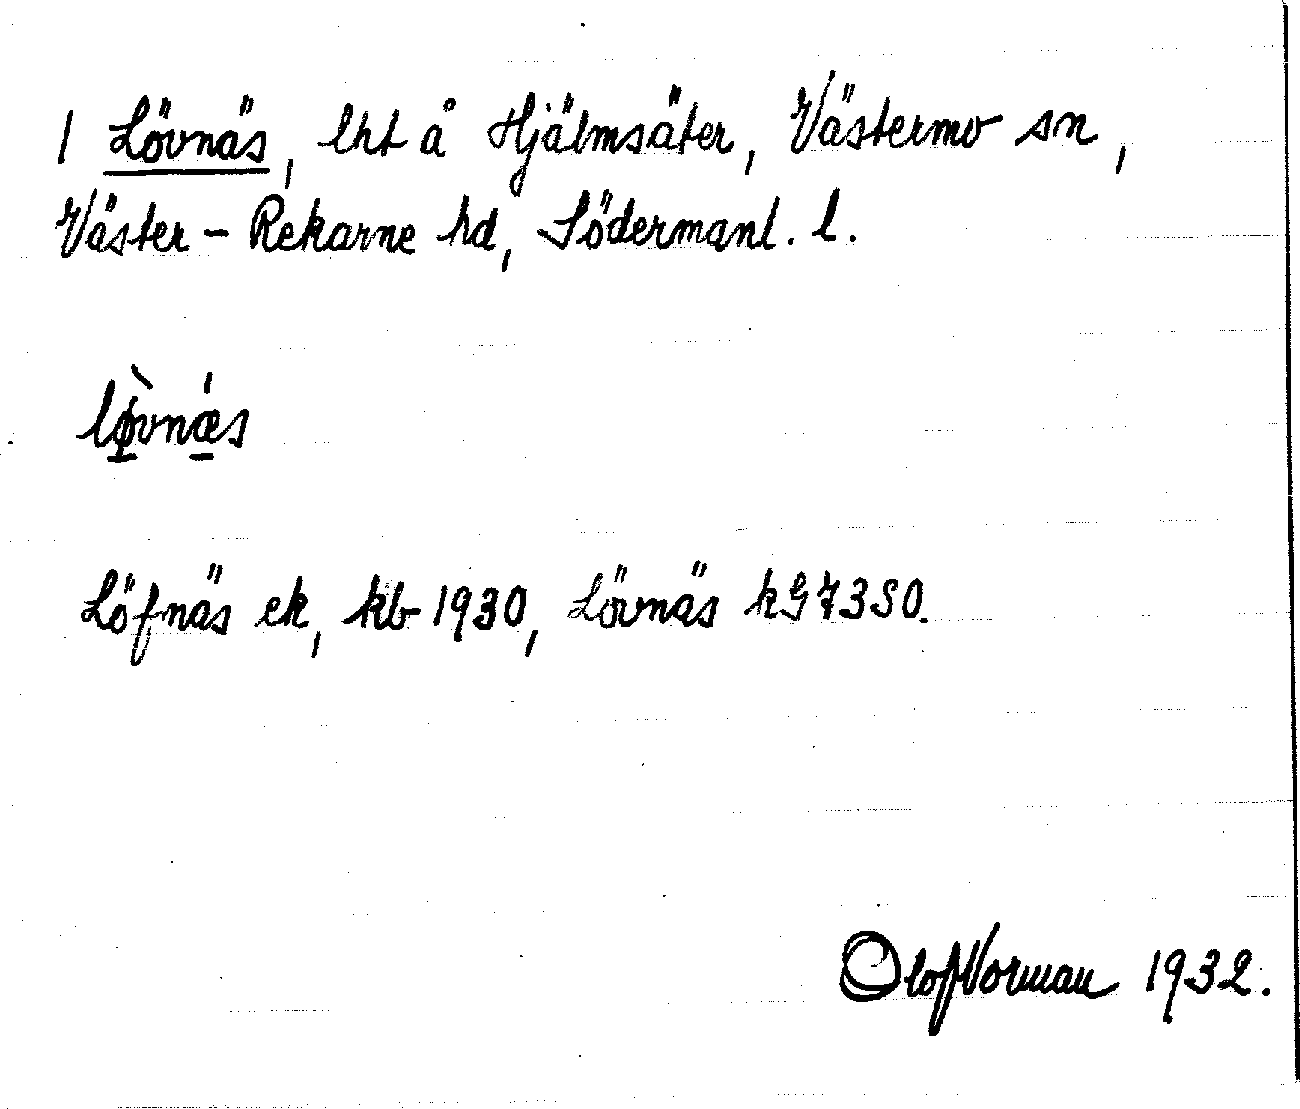 1 Lövnäs, lht å Hjälmsäter, Västermo sn,
Väster-Rekarne hd, Södermanl. l.
lø̀vnǽs
Löfnäs ek, kb 1930, Lövnäs kG7350.
Olof Norman 1932.